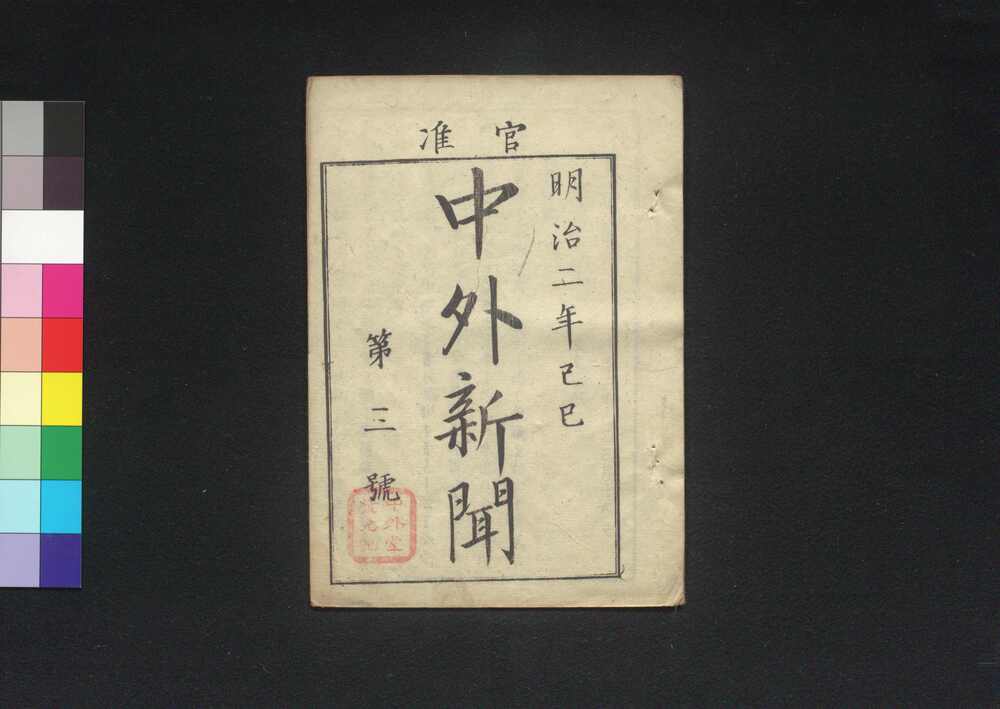 官准
明治二年己巳
中外新聞
第三號
中外堂